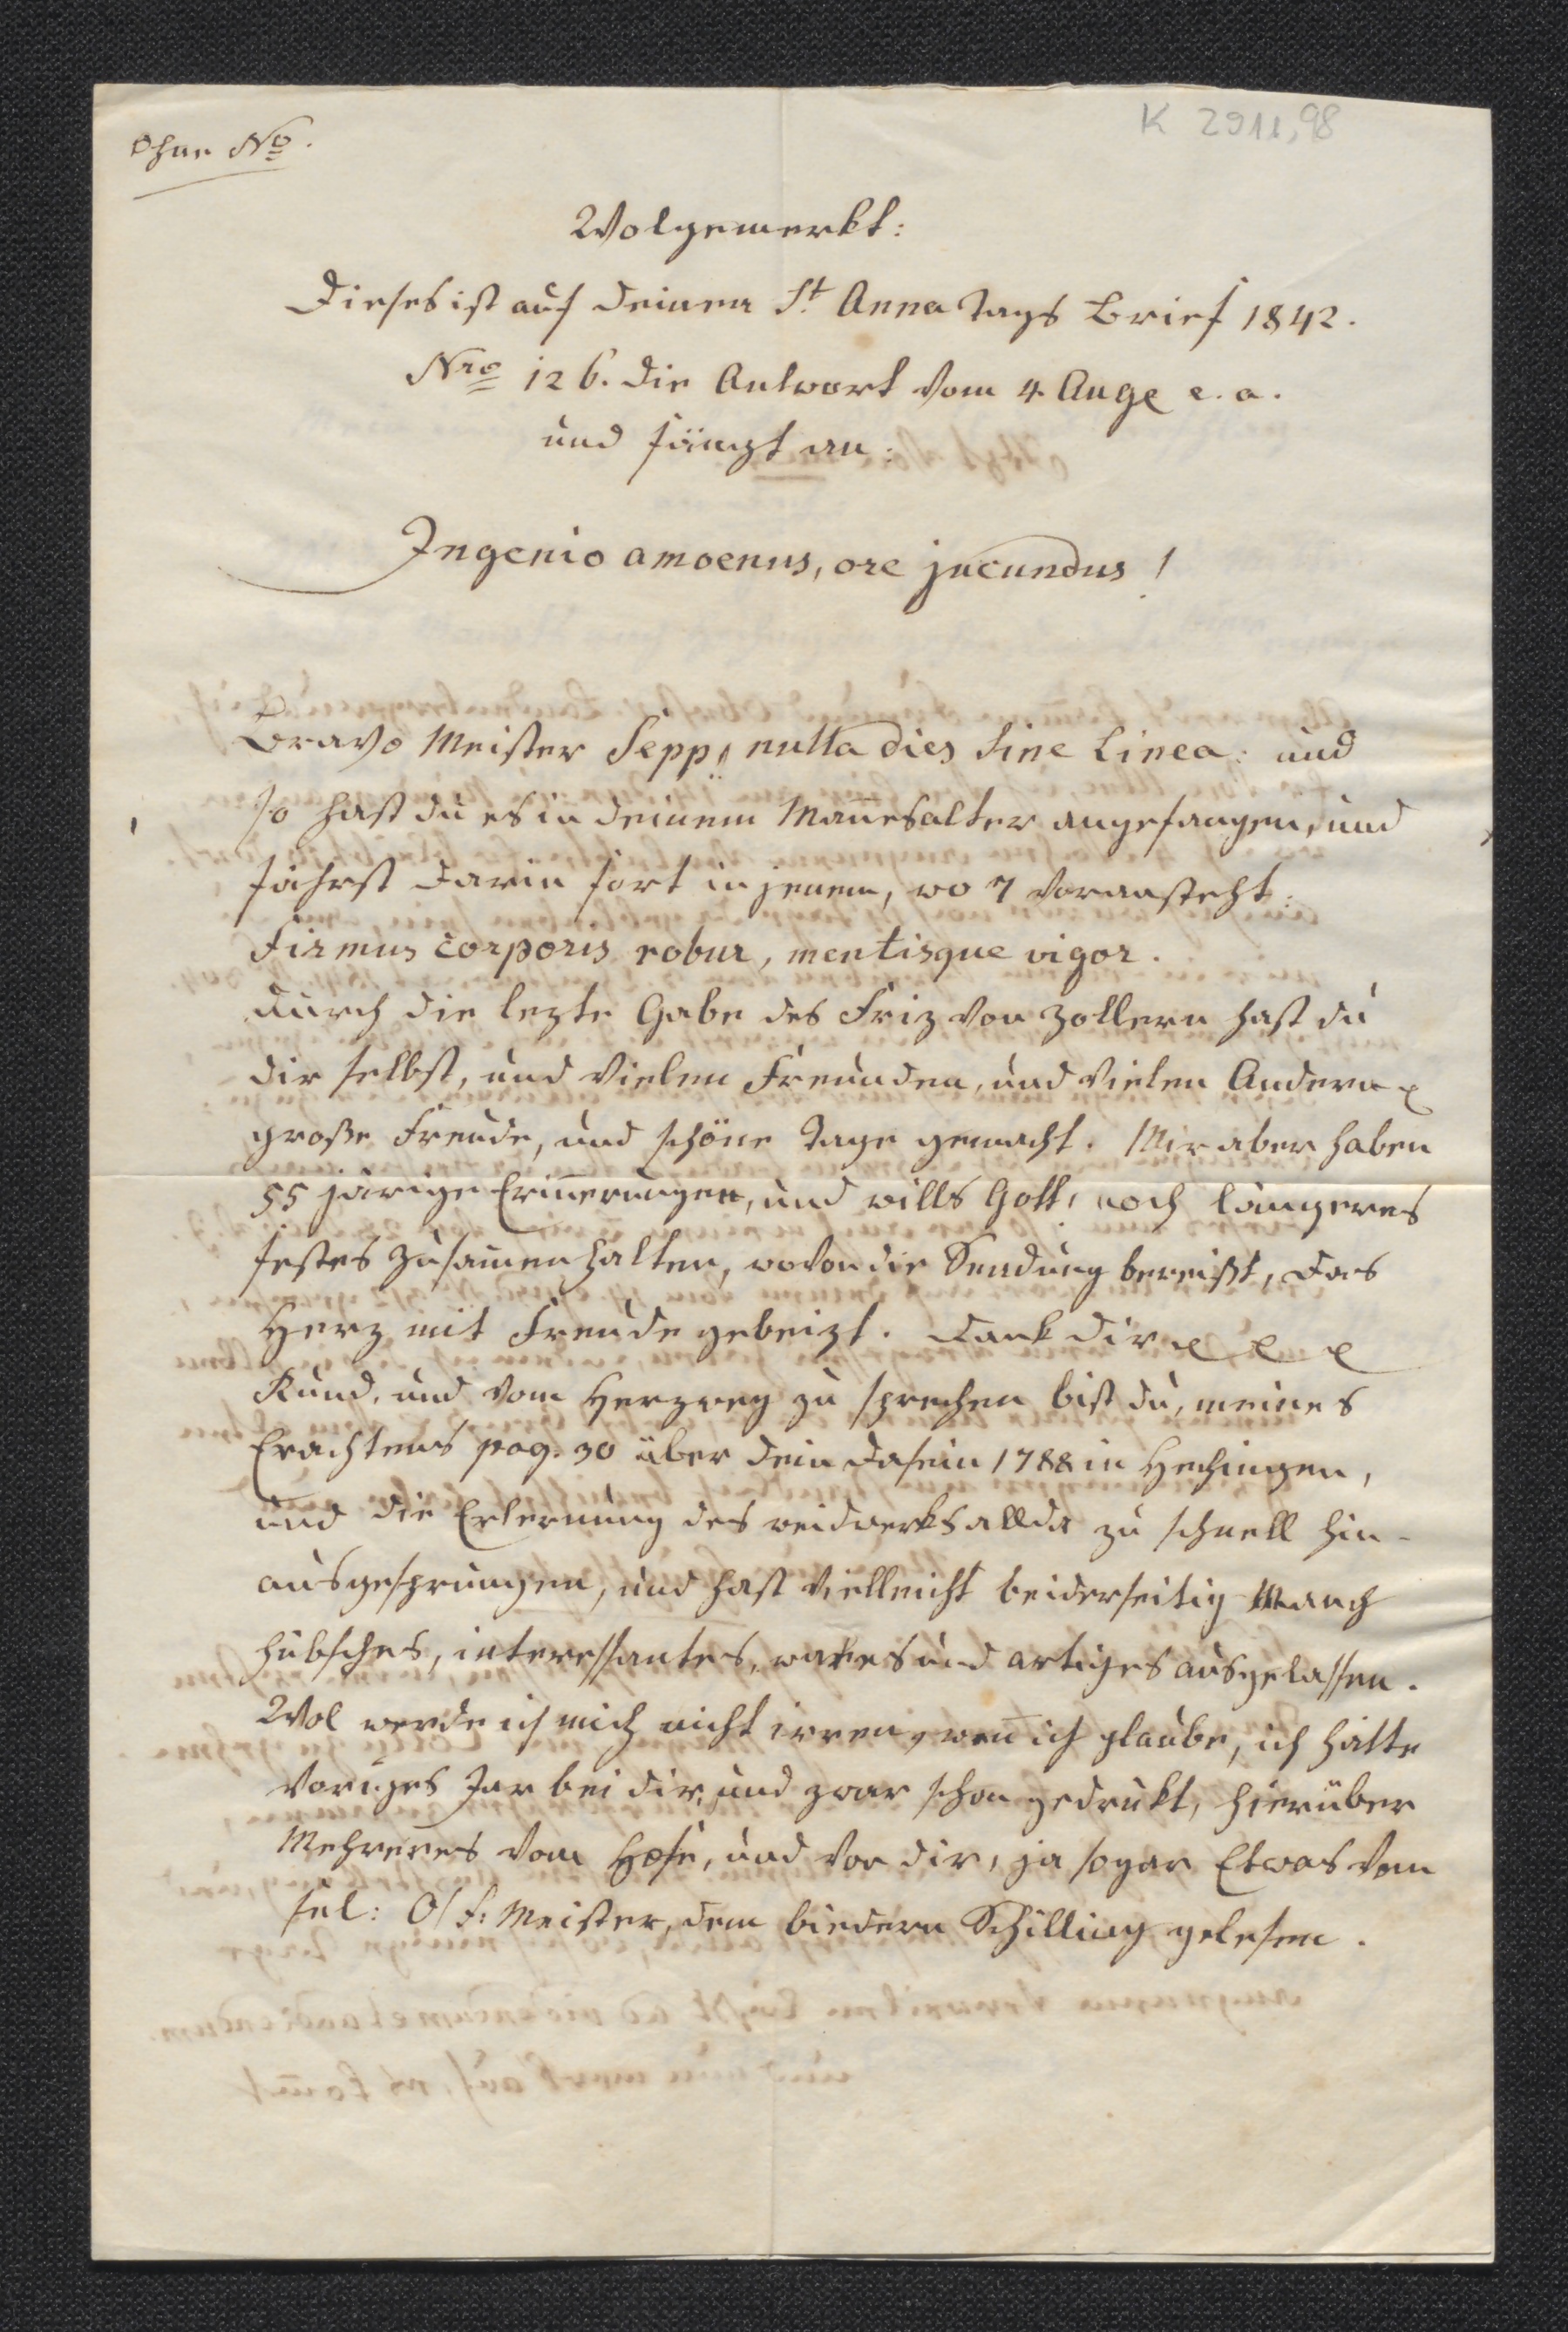 Ohne No.
K 2911,98
Wolgemerkt:
Dieses ist auf deinen St. Anna Tags Brief 1842.
Nro 126. die Antwort vom 4. Auge e. a.
und fängt an:
Ingenio amoenus, ore jucundus!
Bravo Meister Sepp! nulla dies sine Linea: und
so hast du es in deinem Man̅esalter angefangen, und
fährst darin fort in jenem, wo 7 voransteht:
firmus corporis robur, mentisque vigor.
durch die lezte Gabe des Friz von Zollern hast du
dir selbst, und vielen Freunden, und vielen Andern
große Freude, und schöne Tage gemacht. Mir aber haben
55 järige Erin̅erungen, und wills Gott, noch längeres
festes Zusam̅en halten, wovon die Sendung beweißt, das
Herz mit Freude gebeizt. Dank dir
Rund, und vom Herzweg zu sprechen bist du, meines
Erachtens pag. 30 über dein Dasein 1788 in Hechingen,
und die Erlernung des weidwerks allda zu schnell hin-
ausgesprungen, und hast Vielleicht beiderseitig Manch
hübsches, interessantes, wares und artiges ausgelassen.
Wol werde ich mich nicht irren, wen̅ ich glaube, ich hätte
voriges Jar bei dir, und zwar schon gedrukt, hierüber
Mehreres vom Hofe, und von dir, ja sogar Etwas vom
sel: O/f: Meister, dem biedern Schilling gelesen.